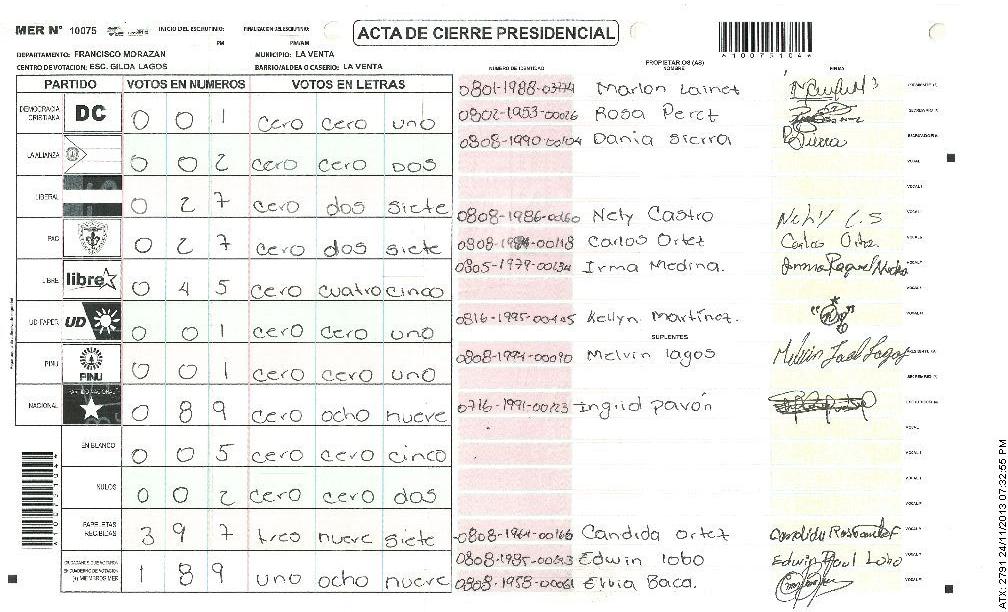 MER Nº 10075 INICIO DEL ESCRUTINIO: FINALIZACION DEL ESCRUTINIO:
PM PM/AM
ACTA DE CIERRE PRESIDENCIAL
*10075104*
DEPARTAMENTO: FRANCISCO MORAZAN MUNICIPIO: LA VENTA
CENTRO DE VOTACION: ESC. GILDA LAGOS BARRIO/ALDEA O CASERIO: LA VENTA
PARTIDO VOTOS EN NUMEROS VOTOS EN LETRAS
DEMOCRACIA CRISTIANA DC 0 0 1 cero cero uno
LA ALIANZA 0 0 2 cero cero dos
LIBERAL 0 2 7 cero dos siete
PAC 0 2 7 cero dos siete
LIBRE libre 0 4 5 cero cuatro cinco
UD-FAPER UD 0 0 1 cero cero uno
PINU PINU 0 0 1 cero cero uno
NACIONAL PARTIDO NACIONAL 0 8 9 cero ocho nueve
EN BLANCO 0 0 5 cero cero cinco
NULOS 0 0 2 cero cero dos
PAPELETAS RECIBIDAS 3 9 7 tres nueve siete
1 8 9 uno ocho nueve
NUMERO DE IDENTIDAD PROPIETARIOS (AS) NOMBRE FIRMA
0801-1988-03774 Marlon Lainet
0802-1953-00026 Rosa Peret
0808-1990-00104 Dania Sierra
0808-1986-00160 Nely Castro Nely C.S
Carlos Ortez Carlos Ortez
0805-1979-00134 Irma Medina.
Kellyn Martínez.
SUPLENTES
0808-1994-00090 Melvin lagos
0716-1991-00123 Ingrid pavón
Candida ortez
Edwin lobo Edwin Raul Lobo
0808-1958-00061 Elvia Baca.
ATX: 2791 24/11/2013 07:32:55 PM